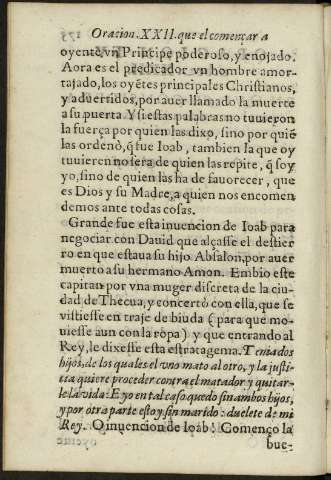 Oracion. XXII. que el començar a
oyente, vn Principe poderoso, y enojado.
Aora es el predicador vn hombre amor-
tajado, los oyẽtes principales Christianos,
y aduertidos, por auer llamado la muerte
a su puerta. Y si estas palabras no tuuieron
la fuerça por quien las dixo, sino por quiẽ
las ordenò, q̃ fue Ioab, tambien la que oy
tuuieren no sera de quien las repite, q̃ soy
yo, sino de quien las ha de fauorecer, que
es Dios y su Madre, a quien nos encomen
demos ante todas cosas.
Grande fue esta inuencion de Ioab para
negociar con Dauid que alçasse el destier
ro en que estaua su hijo Absalon, por auer
muerto a su hermano Amon. Embio este
capitan por vna muger discreta de la ciu-
dad de Thecua, y concertò con ella, que se
vistiesse en traje de biuda (para que mo-
uiesse aun con la ropa) y que entrando al
Rey, le dixesse esta estratagema. Tenia dos
hijos, de los quales el vno mato al otro, y la justi-
cia quiere proceder contra el matador y quitar-
le la vida: E yo en tal caso quedo sin ambos hijos,
y por otra parte estoy sin marido: duelete de mi
Rey. O inuencion de Ioab! Començo la
bue-